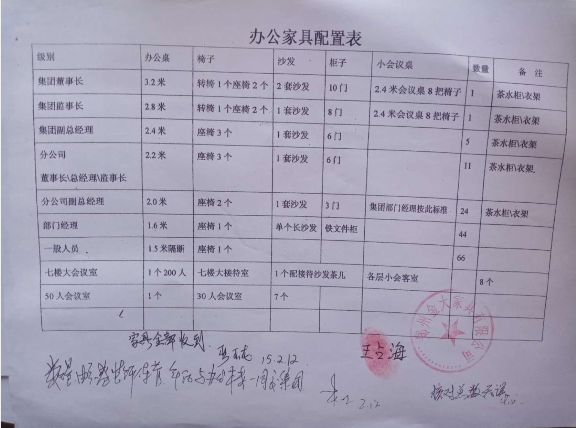 办公家具配置表
级别 办公桌 椅子 沙发 柜子 小会议桌 数量 备 注
集团董事长 3.2 米 转椅 1 个座椅 2 个 2 套沙发 10 门 2.4 米会议桌 8 把椅子 1 茶水柜\衣架
集团监事长 2.8 米 转椅 1 个座椅 2 个 1 套沙发 8 门 2.4 米会议桌 8 把椅子 1 茶水柜\衣架
集团副总经理 2.4 米 座椅 3 个 1 套沙发 6 门 5 茶水柜\衣架
分公司 2.2 米 座椅 3 个 1 套沙发 6 门 11 茶水柜\衣架
董事长\总经理\监事长
分公司副总经理 2.0 米 座椅 2 个 1 套沙发 3 门 集团部门经理按此标准 24 茶水柜\衣架
部门经理 1.6 米 座椅 1 个 单个长沙发 铁文件柜 44
一般人员 1.5 米隔断 座椅 1 个 66
七楼大会议室 1 个 200 人 七楼大接待室 1 个配接待沙发茶几 各层小会客室 8 个
50 人会议室 1 个 30 人会议室 7 个
家具全部收到 15.2.12
王占海
2.12